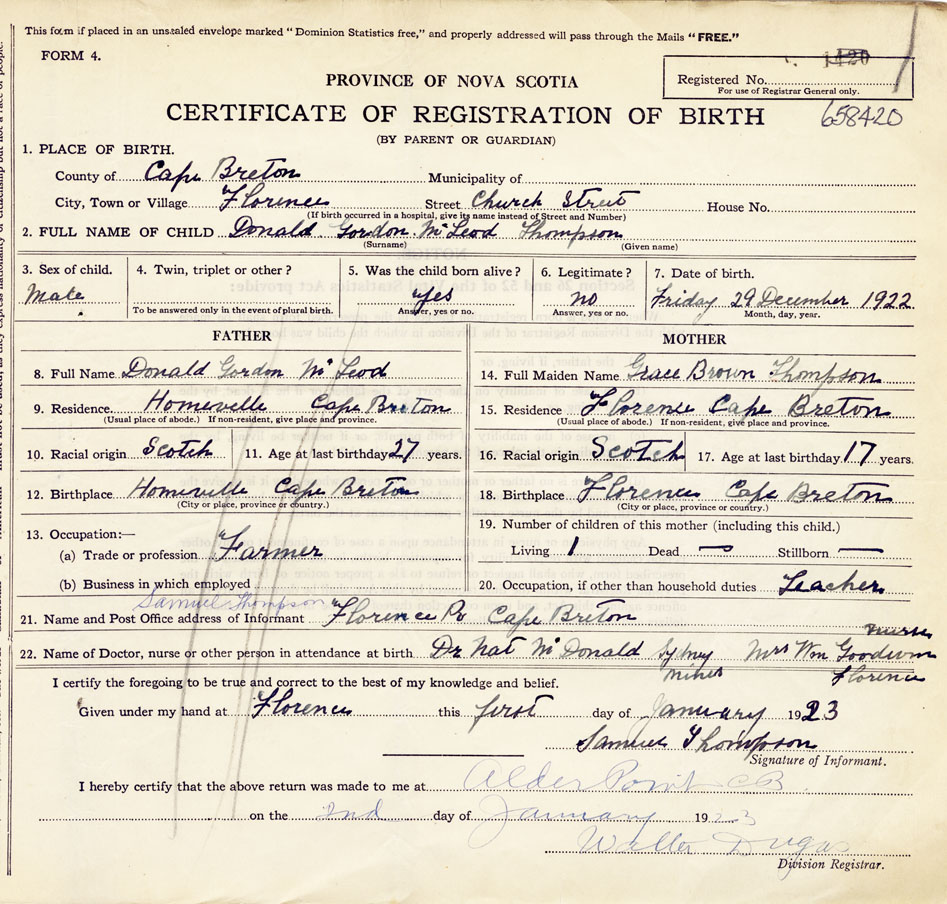 This form if placed in an unsealed envelope marked "Dominion Statistics free," and properly addressed will pass through the Mails "FREE."
FORM 4.
1420
PROVINCE OF NOVA SCOTIA
Registered No.
For use of Registrar General only.
CERTIFICATE OF REGISTRATION OF BIRTH 658420
(BY PARENT OR GUARDIAN)
1. PLACE OF BIRTH.
County of Cape Breton Municipality of
City, Town or Village Florence Street Church Street House No.
(If birth occurred in a hospital, give its name instead of Street and Number)
2. FULL NAME OF CHILD Donald Gordon McLeod Thompson
(Surname) (Given name)
3. Sex of child. 4. Twin, triplet or other? 5. Was the child born alive? 6. Legitimate? 7. Date of birth.
Male yes no Friday 29 December 1922
To be answered only in the event of plural birth. Answer, yes or no. Answer, yes or no. Month, day, year.
FATHER MOTHER
8. Full Name Donald Gordon McLeod 14. Full Maiden Name Grace Brown Thompson
9. Residence. Homeville Cape Breton 15. Residence Florence Cape Breton
(Usual place of abode.) If non-resident, give place and province. (Usual place of abode.) If non-resident, give place and province.
10. Racial origin Scotch 11. Age at last birthday 27 years. 16. Racial origin Scotch 17. Age at last birthday 17 years.
12. Birthplace Homeville Cape Breton 18. Birthplace Florence Cape Breton
(City or place, province or country.) (City or place, province or country.)
13. Occupation:— 19. Number of children of this mother (including this child.)
(a) Trade or profession Farmer Living 1 Dead — Stillborn —
(b) Business in which employed 20. Occupation, if other than household duties Teacher
Samuel Thompson
21. Name and Post Office address of Informant Florence Po Cape Breton
nurse
22. Name of Doctor, nurse or other person in attendance at birth. Dr Nat McDonald Sydney Mrs Wm Goodwin
mines Florence
I certify the foregoing to be true and correct to the best of my knowledge and belief.
Given under my hand at Florence this first day of January 1923
Samuel Thompson
Signature of Informant.
I hereby certify that the above return was made to me at Alder Point CB.
on the 2nd day of January 1923
Walter Dugas
Division Registrar.